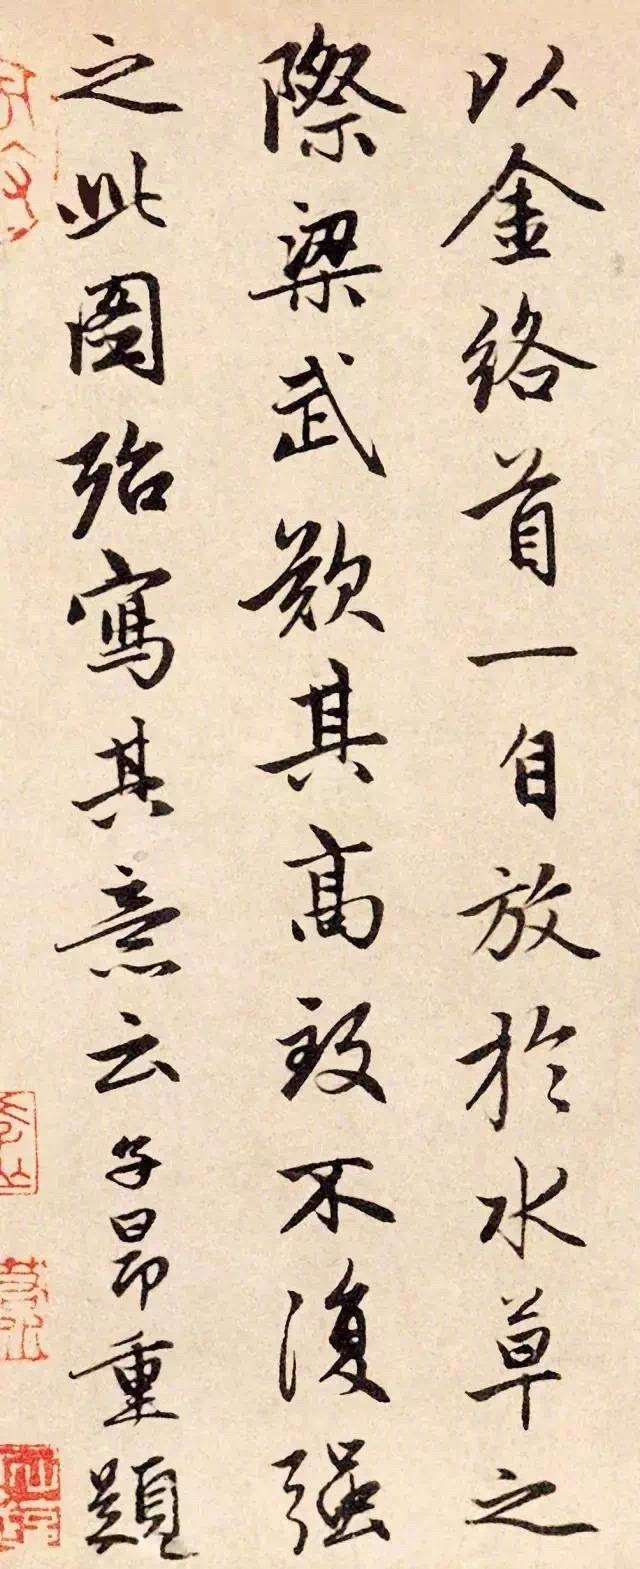 以金络首一自放於水草之
際梁武歎其髙致不復强
之此圖殆寫其意云子昂重題